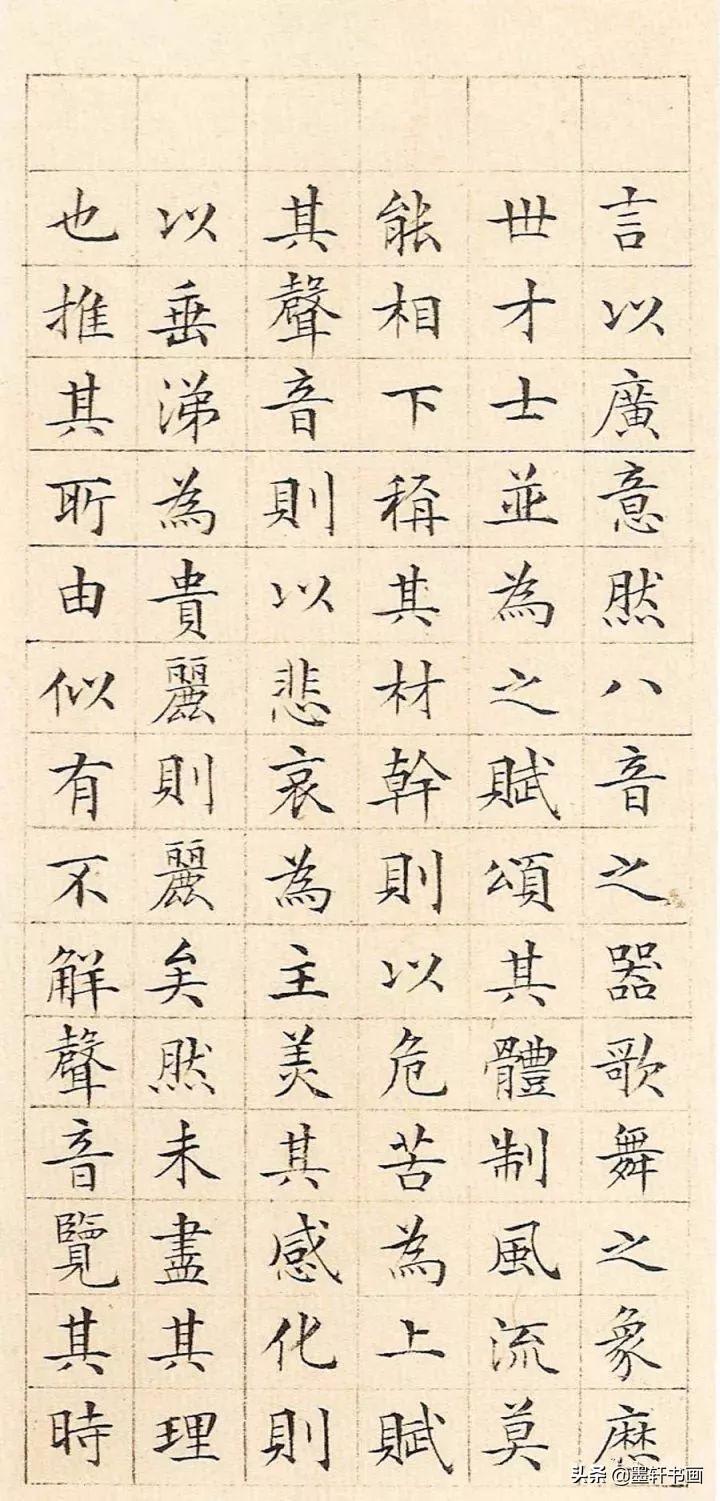 言以廣意然八音之器歌舞之象歷
世才士並為之賦頌其體制風流莫
能相下稱其材幹則以危苦為上賦
其聲音則以悲哀為主美其感化則
以垂涕為貴麗則麗矣然未盡其理
也推其所由似有不解聲音覽其時
头条 @墨轩书画